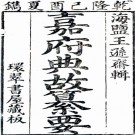 乾隆己酉夏鐫
海鹽王孫齋輯
嘉府典故纂要
環翠書屋藏板